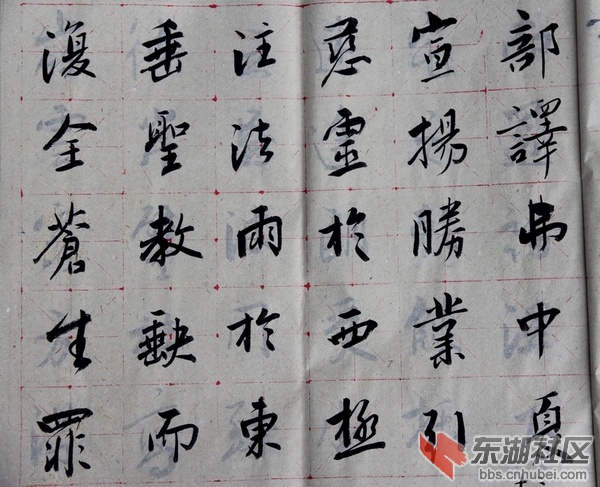 部譯布中夏
宣揚勝業引
慈雲於西極
注法雨於東
垂聖教缺而
復全蒼生罪
东湖社区
bbs.cnhubei.com